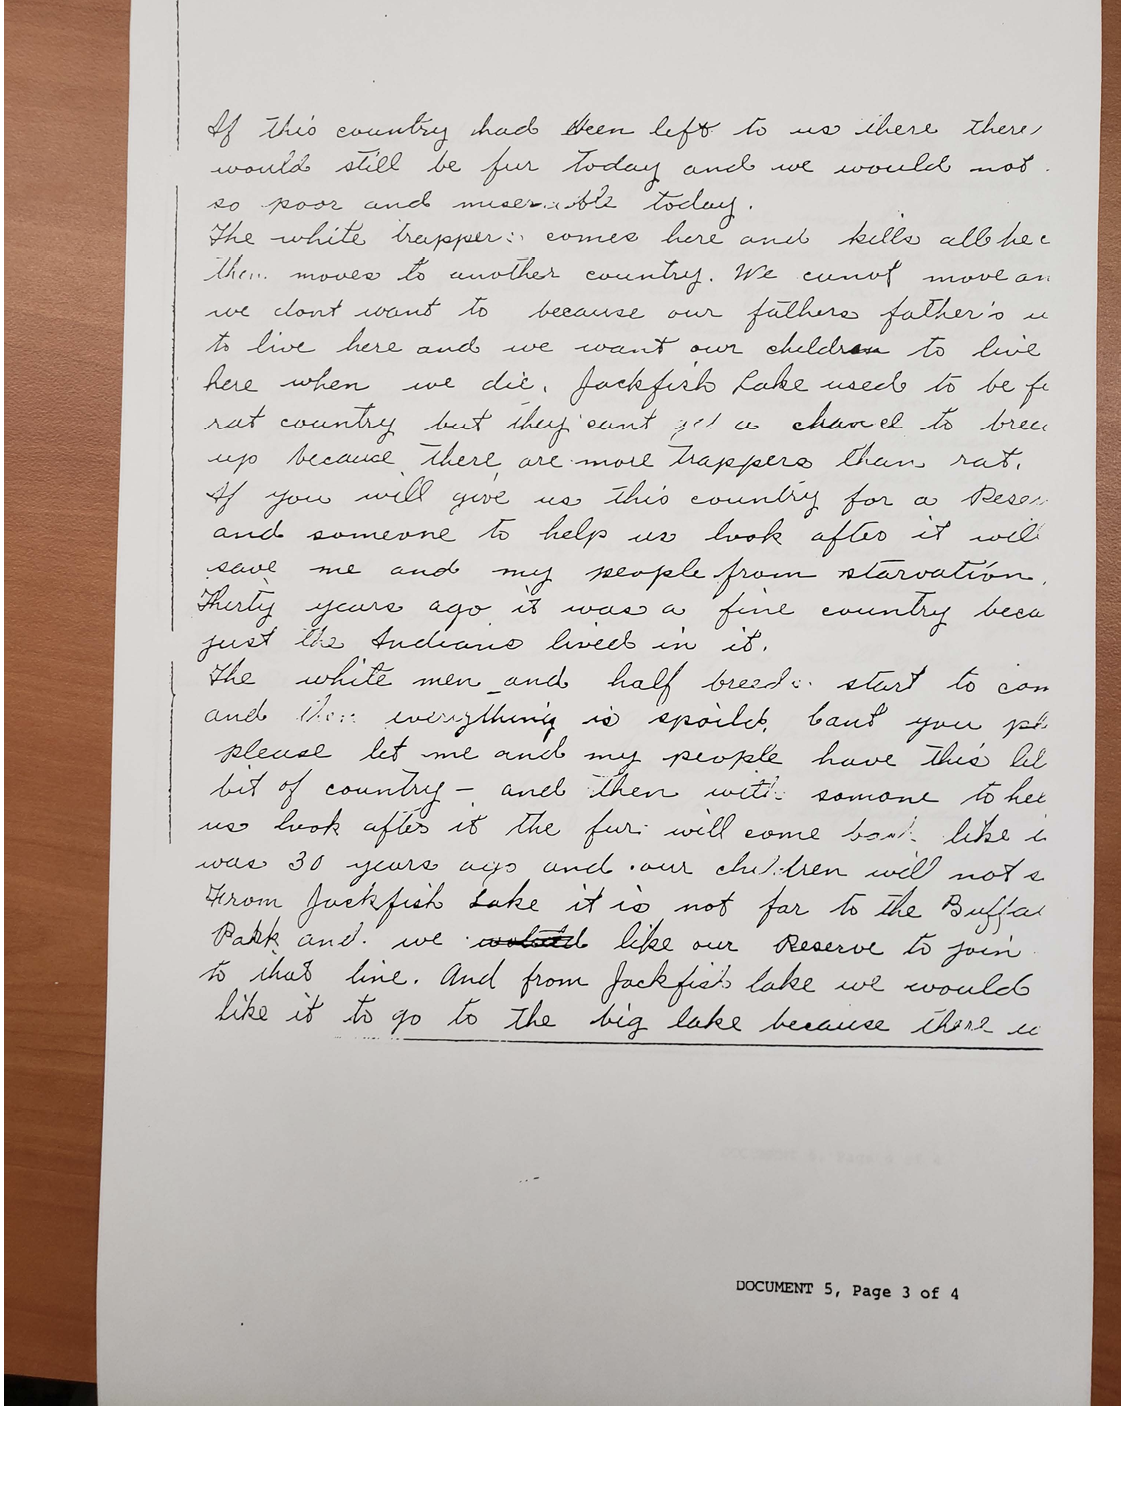 If this country had been left to us there there
would still be fur today and we would not
so poor and miserable today.
The white trappers comes here and kills all he c
then moves to another country. We cunot move an
we dont want to because our fathers father's u
to live here and we want our children to live
here when we die. Jackfish Lake used to be fi
rat country but they cant get a chance to bree
up because there are more trappers than rat.
If you will give us this country for a Reser
and someone to help us look after it will
save me and my people from starvation.
Thirty years ago it was a fine country beca
just the Indians lived in it.
The white men and half breeds start to com
and then everything is spoiled. Cant you pl
please let me and my people have this lil
bit of country - and then with somone to hel
us look after it the fur will come back like i
was 30 years ago and our children will not s
From Jackfish Lake it is not far to the Buffal
Park and we would like our Reserve to join
to that line. And from Jackfish lake we would
like it to go to the big lake because there w
DOCUMENT 5, Page 3 of 4